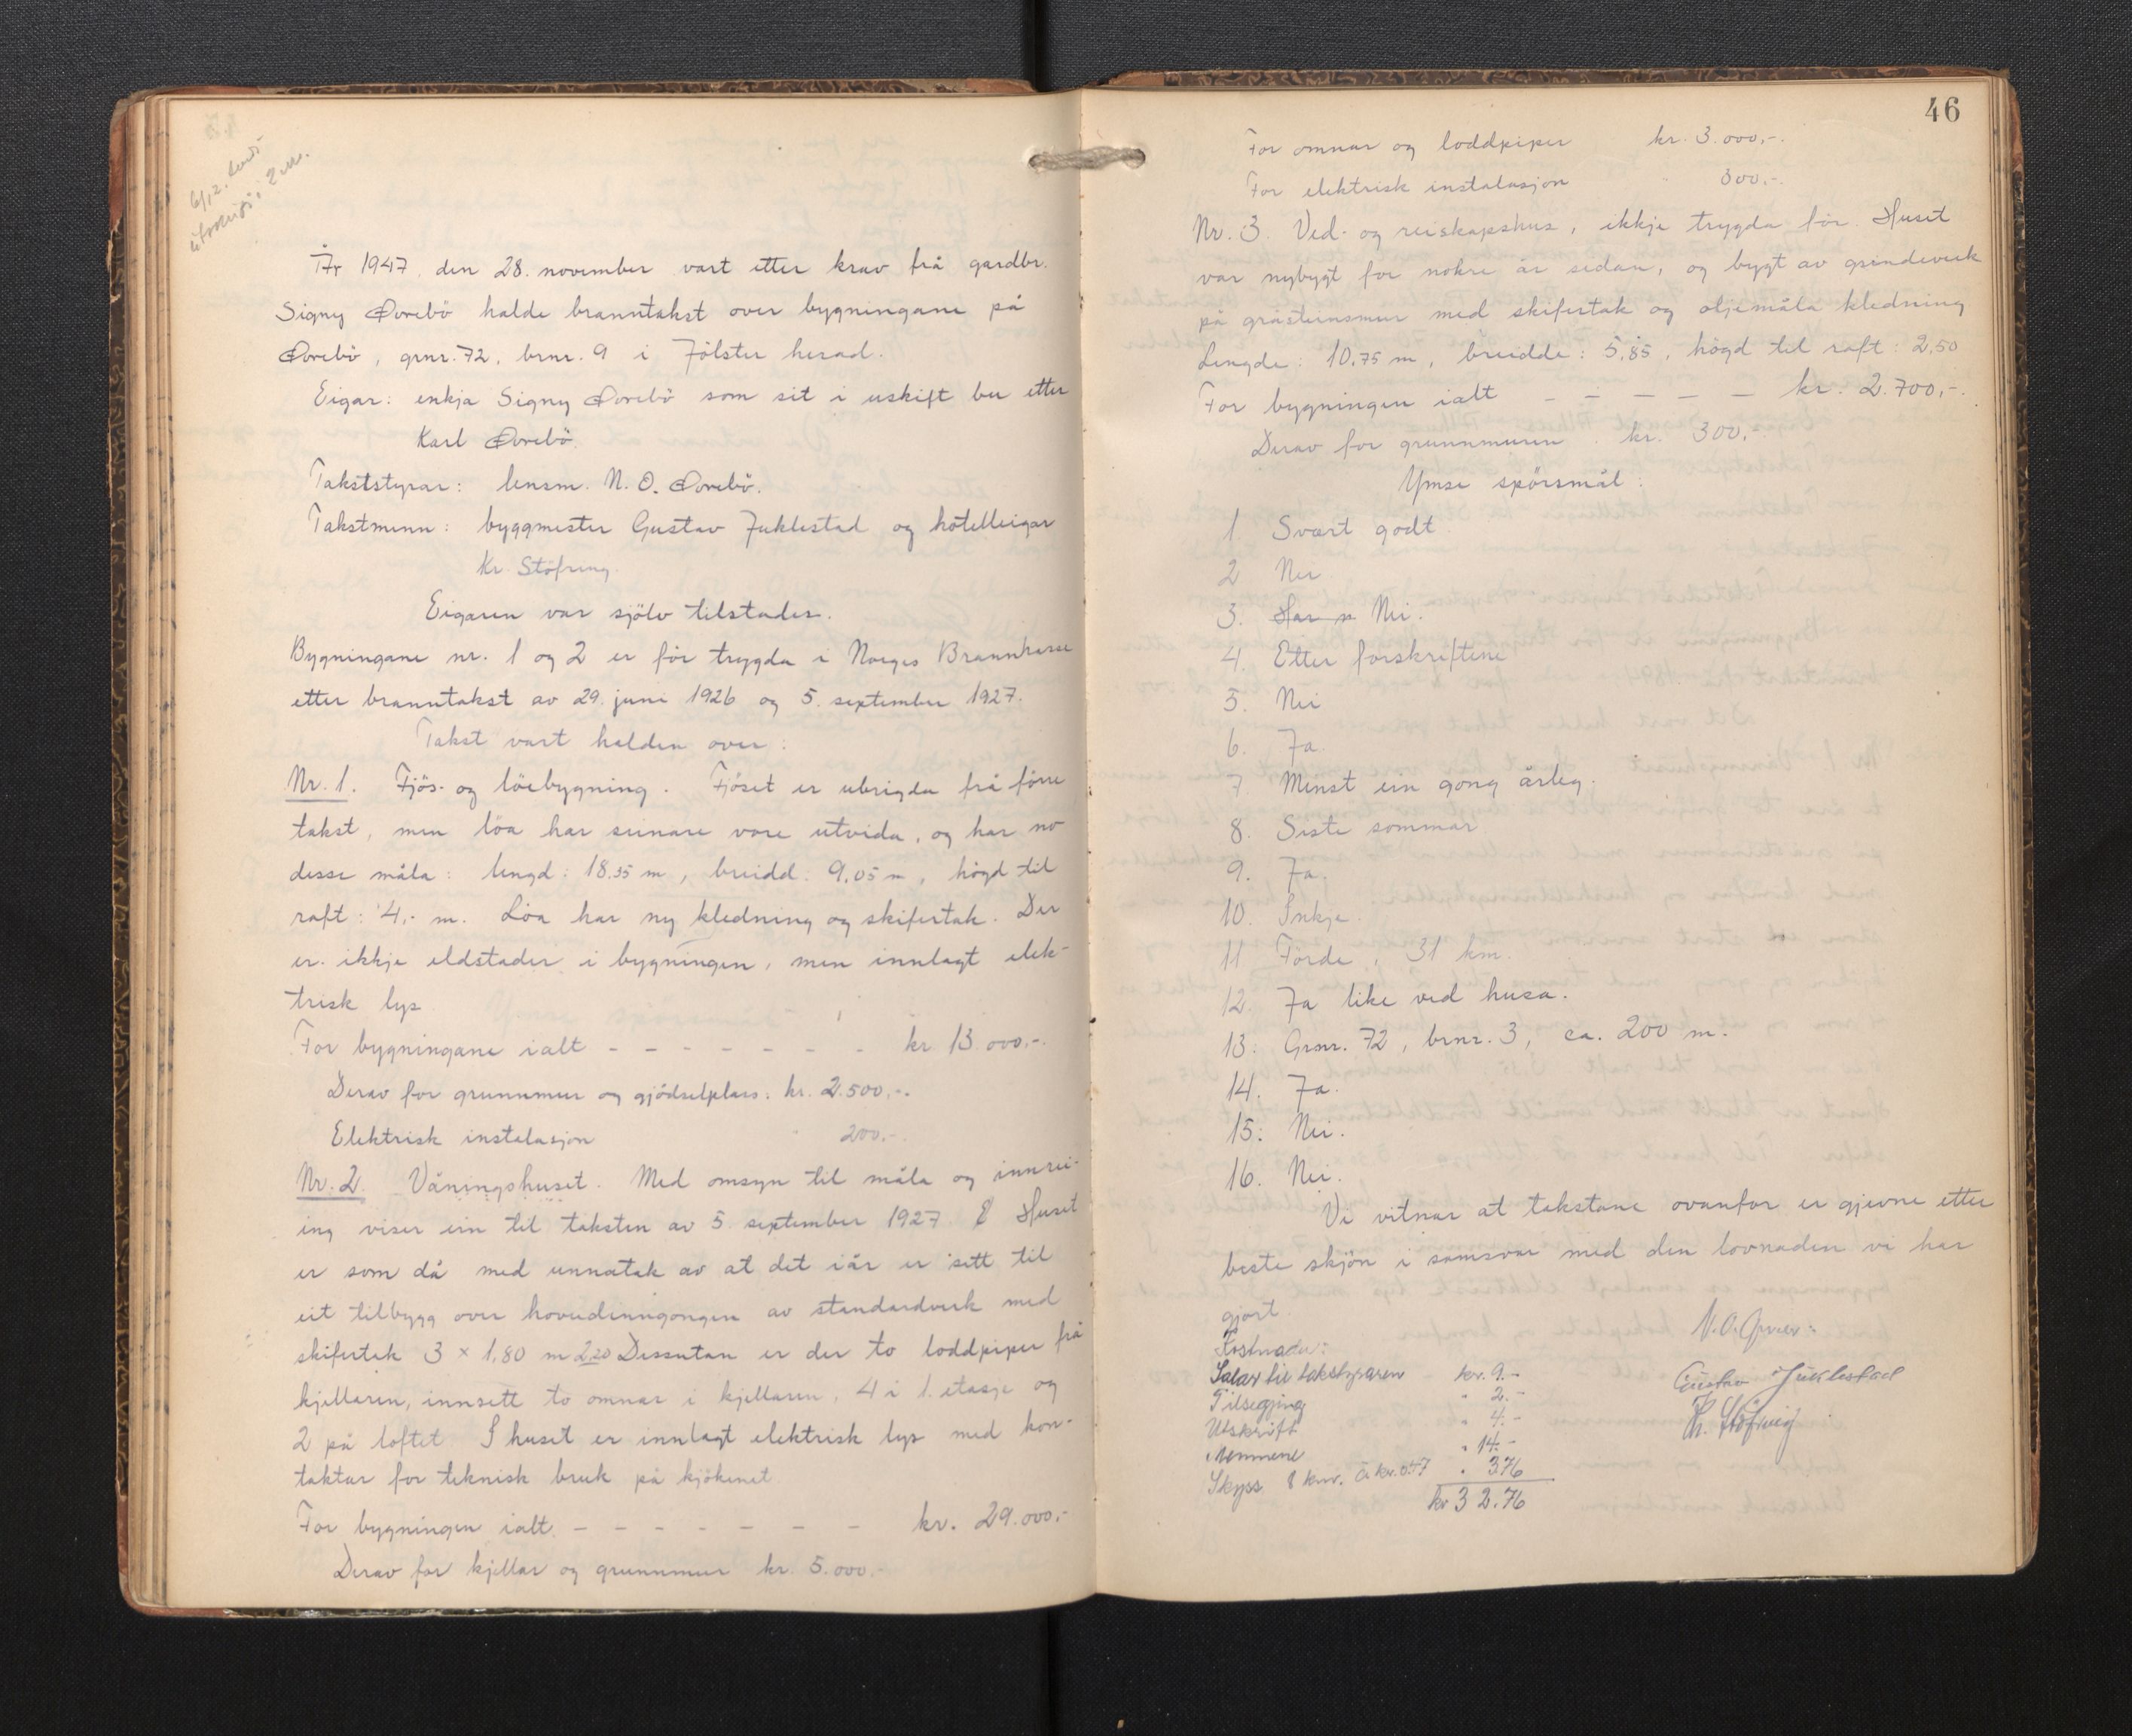 6/12. sendt
utskrift i 2 ex.
År 1947, den 28. november vart etter krav frå gardbr.
Signy Øvrebö halde branntakst over bygningane på
Øvrebö, grnr. 72, brnr. 9 i Jölster herad.
Eigar: enkja Signy Øvrebö som sit i uskift bu etter
Karl Øvrebö.
Takststyrar: lensm. N. O. Øvrebö.
Takstmenn: byggmester Gustav Juklestad og hotelleigar
Kr. Stöfring.
Eigaren var sjölv tilstades.
Bygningane nr. 1 og 2 er för trygda i Norges Brannkasse
etter branntakst av 29. juni 1926 og 5. september 1927.
Takst vart halden over:
Nr. 1. Fjös- og löebygning. Fjöset er ubrigda frå förre
takst, men löa har seinare vore utvida, og har no
desse måla: lengd: 18.35 m, breidd: 9,05 m, högd til
raft: 4,- m. Löa har ny kledning og skifertak. Der
er ikkje eldstader i bygningen, men innlagt elek-
trisk lys.
For bygningane ialt - - - - - - - kr 13.000,-.
Derav for grunnmur og gjödselplass: kr. 2.500,-.
Elektrisk instalasjon 200,-.
Nr. 2. Våningshuset. Med omsyn til måla og innrei-
ing viser ein til taksten av 5. september 1927. E Huset
er som då med unnatak av at det iår er sett til
eit tilbygg over hovudinngongen av standardverk med
skifertak 3 × 1,80 m 2,20 Dessutan er der to loddpiper frå
kjellaren, innsett to omnar i kjellaren, 4 i 1. etasje og
2 på loftet. I huset er innlagt elektrisk lys med kon-
taktar for teknisk bruk på kjökenet.
For bygningen ialt. - - - - - - - kr. 29.000,-
Derav for kjellar og grunnmur kr. 5.000,-
46
For omnar og loddpiper kr. 3.000,-.
For elektrisk instalasjon " 300,-.
Nr. 3. Ved- og reiskapshus, ikkje trygda för. Huset
var nybygt for nokre år sidan, og bygt av grindeverk
på gråsteinsmur med skifertak og oljemåla kledning
Lengde: 10,75 m, breidde: 5,85, högd til raft: 2,50
For bygningen ialt - - - - - kr. 2.700,-.
Derav for grunnmuren. kr. 300,-.
Ymse spörsmål:
1 Svært godt
2 Nei
3. Har n Nei.
4. Etter forskriftene
5. Nei
6. Ja.
7 Minst ein gong årleg.
8. Siste sommar
9. Ja.
10. Inkje.
11 Förde, 31 km.
12. Ja like ved husa.
13. Grnr. 72, brnr. 3, ca. 200 m.
14. Ja.
15. Nei.
16. Nei.
Vi vitnar at takstane ovanfor er gjevne etter
beste skjön i samsvar med den lovnaden vi har
gjort
Kostnader:
Salar til takstyraren kr. 9.-
Tilsegjing " 2.-
Utskrift " 4.-
Mennene " 14.-
Skyss 8 km. à kr. 0.47 " 3.76
kr 32.76
Gustav Juklestad
Kr. Stöfring